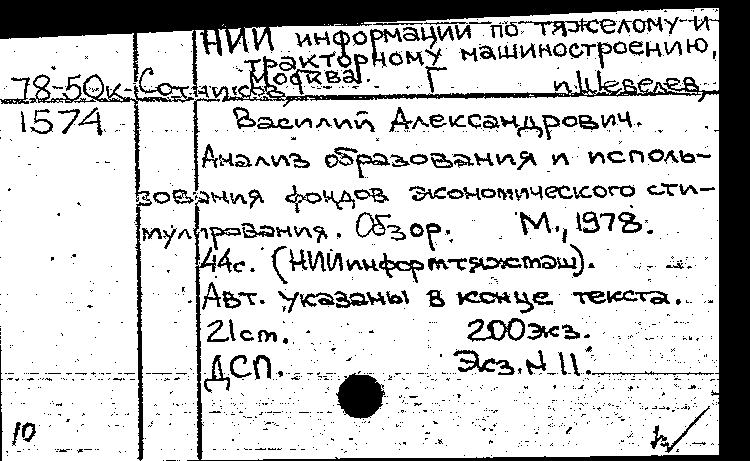 НИИ информации по тяжелому и
тракторному машиностроению,
Москва. Г
78-50к Сотников, п.Шевелев,
1574 Василий Александрович.
Анализ образования и исполь-
зования фондов экономического сти-
мулирования. Обзор. М., 1978.
44с. (НИИинформтяжмаш).
Авт. указаны в конце текста.
21см. 200экз.
ДСП. Экз.N 11.
10